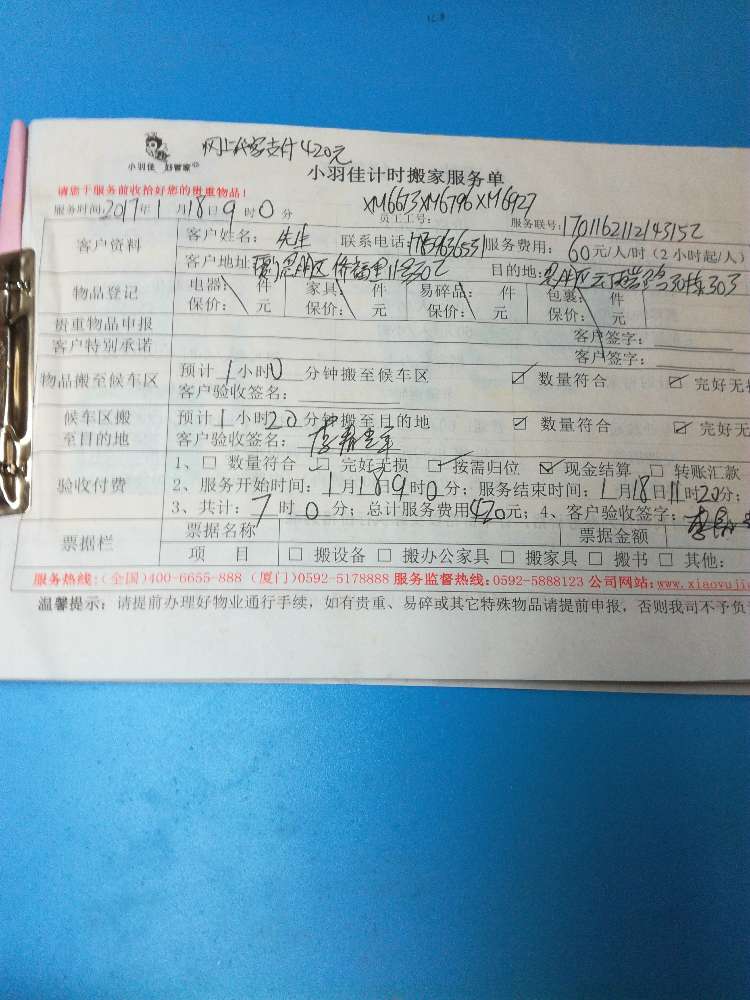 网上代客支付420元
小羽佳 好管家
小羽佳计时搬家服务单
请您于服务前收拾好您的贵重物品!
XM6673 XM6796 XM6927
服务时间:2017年1月18日9时0分 员工工号: 服务联号:
客户资料 客户姓名: 先生 联系电话: 服务费用: 60元/人/时(2小时起/人)
客户地址: 思明区侨福里 目的地: 思明区
物品登记 电器: 件 家具: 件 易碎品: 件 包裹: 件
保价: 元 保价: 元 保价: 元 保价: 元
贵重物品申报 客户签字:
客户特别承诺 客户签字:
物品搬至候车区 预计1小时0分钟搬至候车区 ☑ 数量符合 ☑ 完好无
客户验收签名:
候车区搬至目的地 预计1小时20分钟搬至目的地 ☑ 数量符合 ☑ 完好无
客户验收签名:
验收付费 1、□ 数量符合 完好无损 ☑ 按需归位 ☑ 现金结算 □ 转账汇款
2、服务开始时间:1月18日9时0分;服务结束时间:1月18日11时20分;
3、共计:7时0分;总计服务费用420元;4、客户验收签字:
票据栏 票据名称 票据金额
项 目 □ 搬设备 □ 搬办公家具 □ 搬家具 □ 搬书 □ 其他:
服务热线:(全国)400-6655-888 (厦门)0592-5178888 服务监督热线:0592-5888123 公司网站:www.xiaoyuji
温馨提示:请提前办理好物业通行手续,如有贵重、易碎或其它特殊物品请提前申报,否则我司不予负